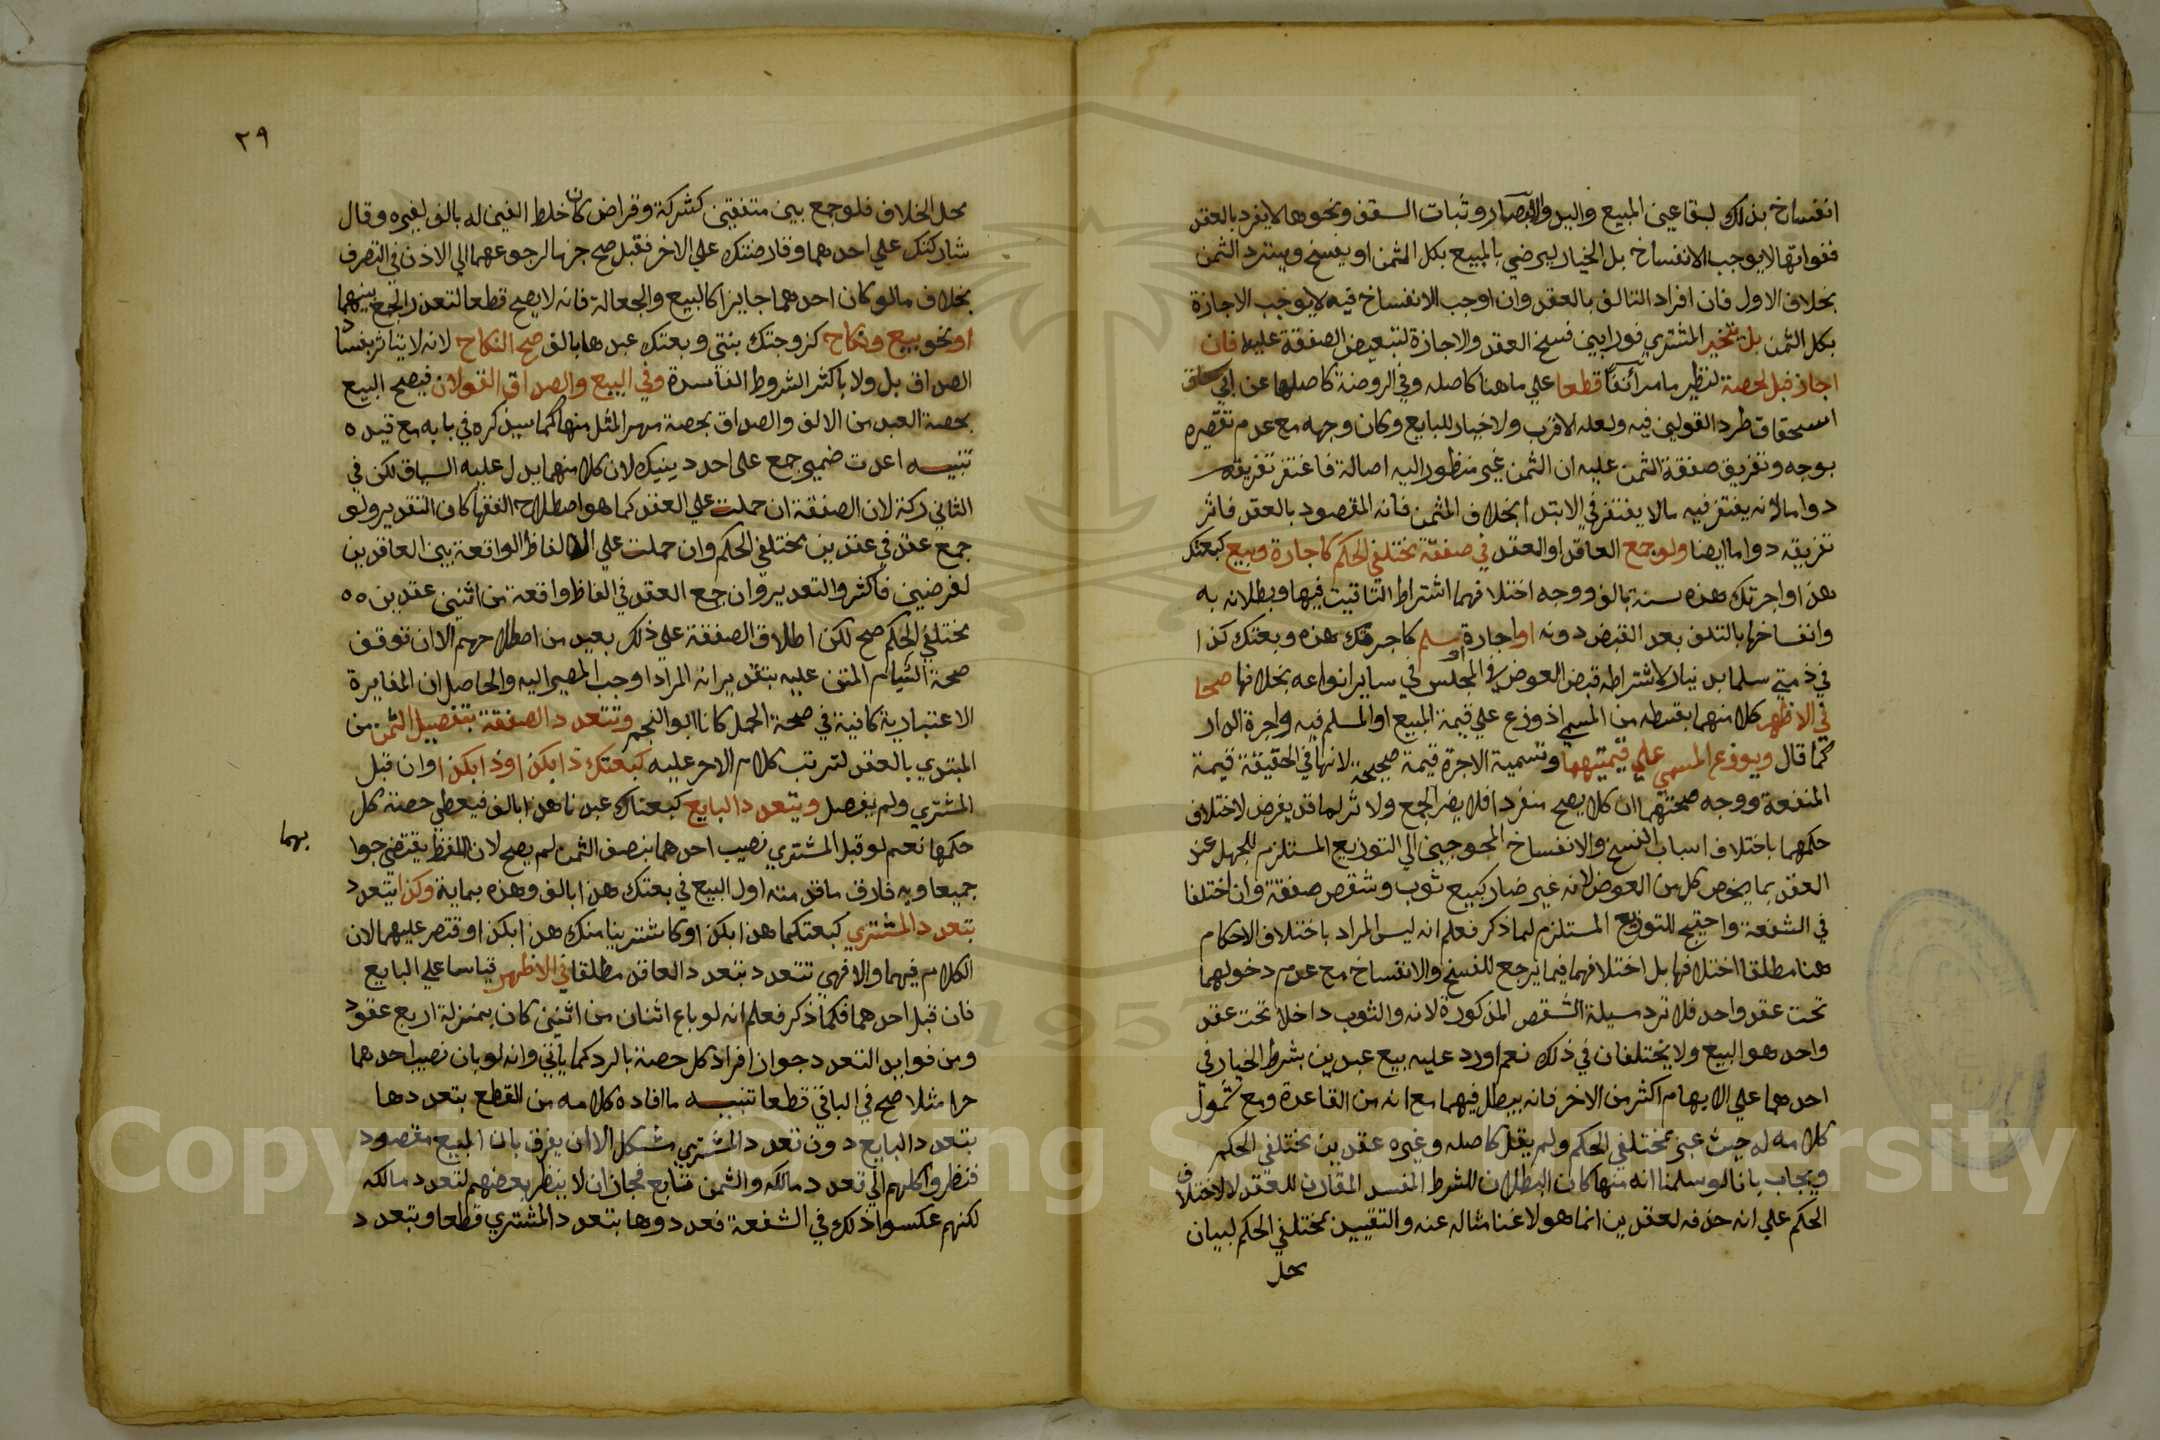 انفساخ بذلك لبقا عين المبيع واليد والابصار وثبات السقف ونحوها لا يفرد بالعقد
ففواتها لا يوجب الانفساخ بل الخيار ليرضي بالمبيع بكل الثمن او يفسخ ويسترد الثمن
بخلاف الاول فان افراد التالف بالعقد وان اوجب الانفساخ فيه لا يوجب الاجازة
بكل الثمن بل يتخير المشتري فورا بين فسخ العقد والاجازة لتبعيض الصفقة عليه فان
اجاز فبالحصة لنظير ما مر آنفا قطعا علي ما هنا كاصله وفي الروضة كاصلها عن ابي
اسحق طرد القولين فيه ولعله الاقرب ولا خيار للبايع وكان وجهه مع عدم تقصيره
بوجه وتفريق صفقة الثمن عليه ان الثمن غير منظور اليه اصالة فاغتفر تفريقه
دواما لانه يغتفر فيه مالا يغتفر في الابتدا بخلاف المثمن فانه المقصود بالعقد فاثر
تفريقه دواما ايضا ولو جمع العاقد او العقد في صفقة مختلفي الحكم كاجارة وبيع كبعتك
هذا واجرتك هذه سنة بالف ووجه اختلافهما اشتراط التاقيت فيها وبطلانه به
وانفساخها بالتلف بعد القبض دونه او اجارة وسلم كاجرتك هذه وبعتك كذا
في ذمتي سلما بدينار لاشتراطه قبض العوض في المجلس في ساير انواعه بخلافها صحا
في الاظهر كلا منهما بقسطه من المسمي اذ وزع علي قيمة المبيع او المسلم فيه واجرة الدار
كما قال ويوزع المسمي علي قيمتيهما وتسمية الاجرة قيمة صحيحة لانها في الحقيقة قيمة
المنفعة ووجه صحتهما ان كلا يصح منفردا فلا يضر الجمع ولا اثر لما قد يفرض لاختلاف
حكمهما باختلاف اسباب الفسخ والانفساخ المحوجين الي التوزيع المستلزم للجهل عند
العقد بما يخص كل من العوض لانه غير ضار كبيع ثوب وشقص صفقة وان اختلفا
في الشفعة واحتيج للتوزيع المستلزم لما ذكر فعلم انه ليس المراد باختلاف الاحكام
هنا مطلق اختلافها بل اختلافهما فيما يرجع للفسخ والانفساخ مع عدم دخولهما
تحت عقد واحد فلا ترد مسيلة الشقص المذكورة لانه والثوب داخلا تحت عقد
واحد هو البيع ولا يختلفان في ذلك نعم اورد عليه بيع عبدين بشرط الخيار في
احدهما علي الابهام اكثر من الاخر فانه يبطل فيهما مع انه من القاعدة ومع شمول
كلامه له حيث عبر بمختلفي الحكم ولم يقل كاصله وغيره عقدين مختلفي الحكم
ويجاب بانا لو سلمنا انه منها كان البطلان للشرط المفسد المقارن للعقد لا لاختلاف
الحكم علي انه حذفه لعقدين انما هو لاغنا مثاله عنه والتقييد بمختلفي الحكم لبيان
محل
٢٩
محل الخلاف فلو جمع بين متفقين كشركة وقراض كان خلط الفين له بالف لغيره وقال
شاركتك علي احدهما وقارضتك علي الاخر فقبل صح جزما لرجوعهما الي الاذن في التصرف
بخلاف ما لو كان احدهما جايزا كالبيع والجعالة فانه لا يصح قطعا لتعذر الجمع بينهما
او نحو بيع ونكاح كزوجتك بنتي وبعتك عبدها بالف صح النكاح لانه لا يتاثر بفساد
الصداق بل ولا باكثر الشروط الفاسدة وفي البيع والصداق القولان فيصح البيع
بحصة العبد من الالف والصداق بحصة مهر المثل منها كما سيذكره في بابه مع قيده
تنبيه اعدت ضمير جمع على احد ذينيك لان كلا منهما يدل عليه السياق لكن في
الثاني ركة لان الصفقة ان حملت علي العقد كما هو اصطلاح الفقها كان التقدير ولو
جمع عقد في عقدين مختلفي الحكم وان حملت علي الالفاظ الواقعة بين العاقدين
لغرضين فاكثر والتقدير وان جمع العقد في الفاظ واقعة من اثنين عقدين
مختلفي الحكم صح لكن اطلاق الصفقة علي ذلك بعيد من اصطلاحهم الا ان توقف
صحة الشيء المتفق عليه بتقدير انه المراد اوجب المصير اليه والحاصل ان المغايرة
الاعتبارية كافية في صحة الحمل كانا ابو النجم وتتعدد الصفقة بتفصيل الثمن من
المبتدي بالعقد لترتب كلام الاخر عليه كبعتك ذا بكذا وذا بكذا وان قبل
المشتري ولم يفصل وبتعدد البايع كبعناك عبدنا هذا بالف فيعطي حصة كل
حكمها نعم لو قبل المشتري نصيب احدهما بنصف الثمن لم يصح لان اللفظ يقتضي جوابهما
جميعا وبه فارق ما قدمته اول البيع في بعتك هذا بالف وهذه بماية وكذا يتعدد
بتعدد المشتري كبعتكما هذا بكذا وكاشترينا منك هذا بكذا واقتصر عليهما لان
الكلام فيهما والا فهي تتعدد بتعدد العاقد مطلقا في الاظهر قياسا علي البايع
فان قبل احدهما فكما ذكر فعلم انه لو باع اثنان من اثنين كان بمنزلة اربع عقود
ومن فوايد التعدد جواز افراد كل حصة بالرد كما ياتي وانه لو بان نصيب احدهما
حرا مثلا صح في الباقي قطعا تنبيه ما افاده كلامه من القطع بتعددها
بتعدد البايع دون تعدد المشتري مشكل الا ان يفرق بان المبيع مقصود
فنظروا كلهم الي تعدد مالكه والثمن تابع فجاز ان لا ينظر بعضهم لتعدد مالكه
لكنهم عكسوا ذلك في الشفعة فعددوها بتعدد المشتري قطعا وبتعدد
Copyright © King Saud University
1957